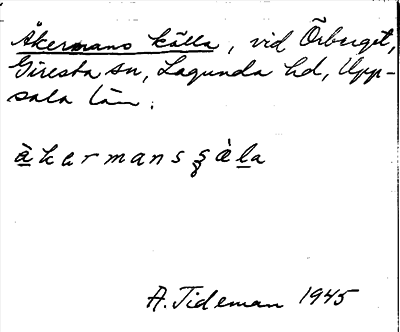 Åkermans källa, vid Örberget,
Giresta sn, Lagunda hd, Upp-
sala län.
åkermans
A. Tideman 1945